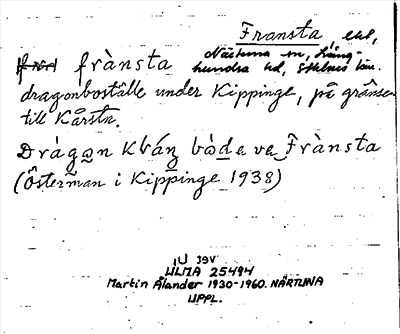 Fransta, ekl,
Närtuna sn, Lång-
hundra hd, Sthlms län.
frànsta
dragonboställe under Kippinge, på gränsen
till Kårsta.
Drágon Kván bòda va Frànsta
(Österman i Kippinge 1938)
IU 39V
ULMA 25494
Martin Ålander 1930-1960. NÄRTUNA
UPPL.